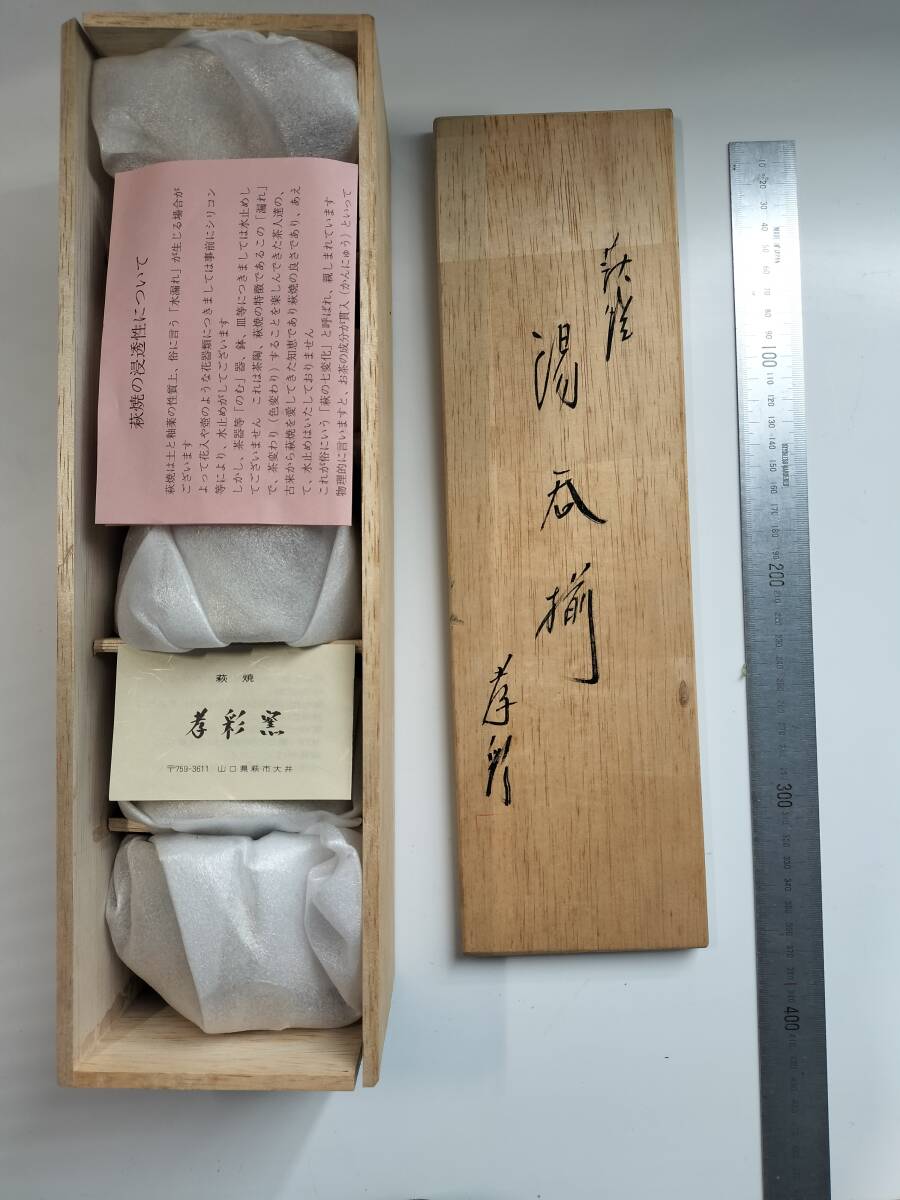 萩焼の浸透性について
萩焼は土と釉薬の性質上、俗に言う「水漏れ」が生じる場合が
ございます
よって花入や壺のような花器類につきましては事前にシリコン
等により、水止めがしてございます
しかし、茶器等「のむ」器、鉢、皿等につきましては水止めし
てございません　これは茶陶、萩焼の特徴であるこの「漏れ」
で、茶変わり（色変わり）することを楽しんできた茶人達の、
古来から萩焼を愛してきた知恵であり萩焼の良さであり、あえ
て、水止めはいたしておりません
これが俗にいう「萩の七変化」と呼ばれ、親しまれています
物理的に言いますと、お茶の成分が貫入（かんにゅう）といって
萩焼
孝彩窯
〒759-3611　山口県萩市大井
萩焼
湯呑揃
孝彩
10 20 30 40 50 60 70 80 90 100 110 120 130 140 150 160 170 180 190 200
300
400